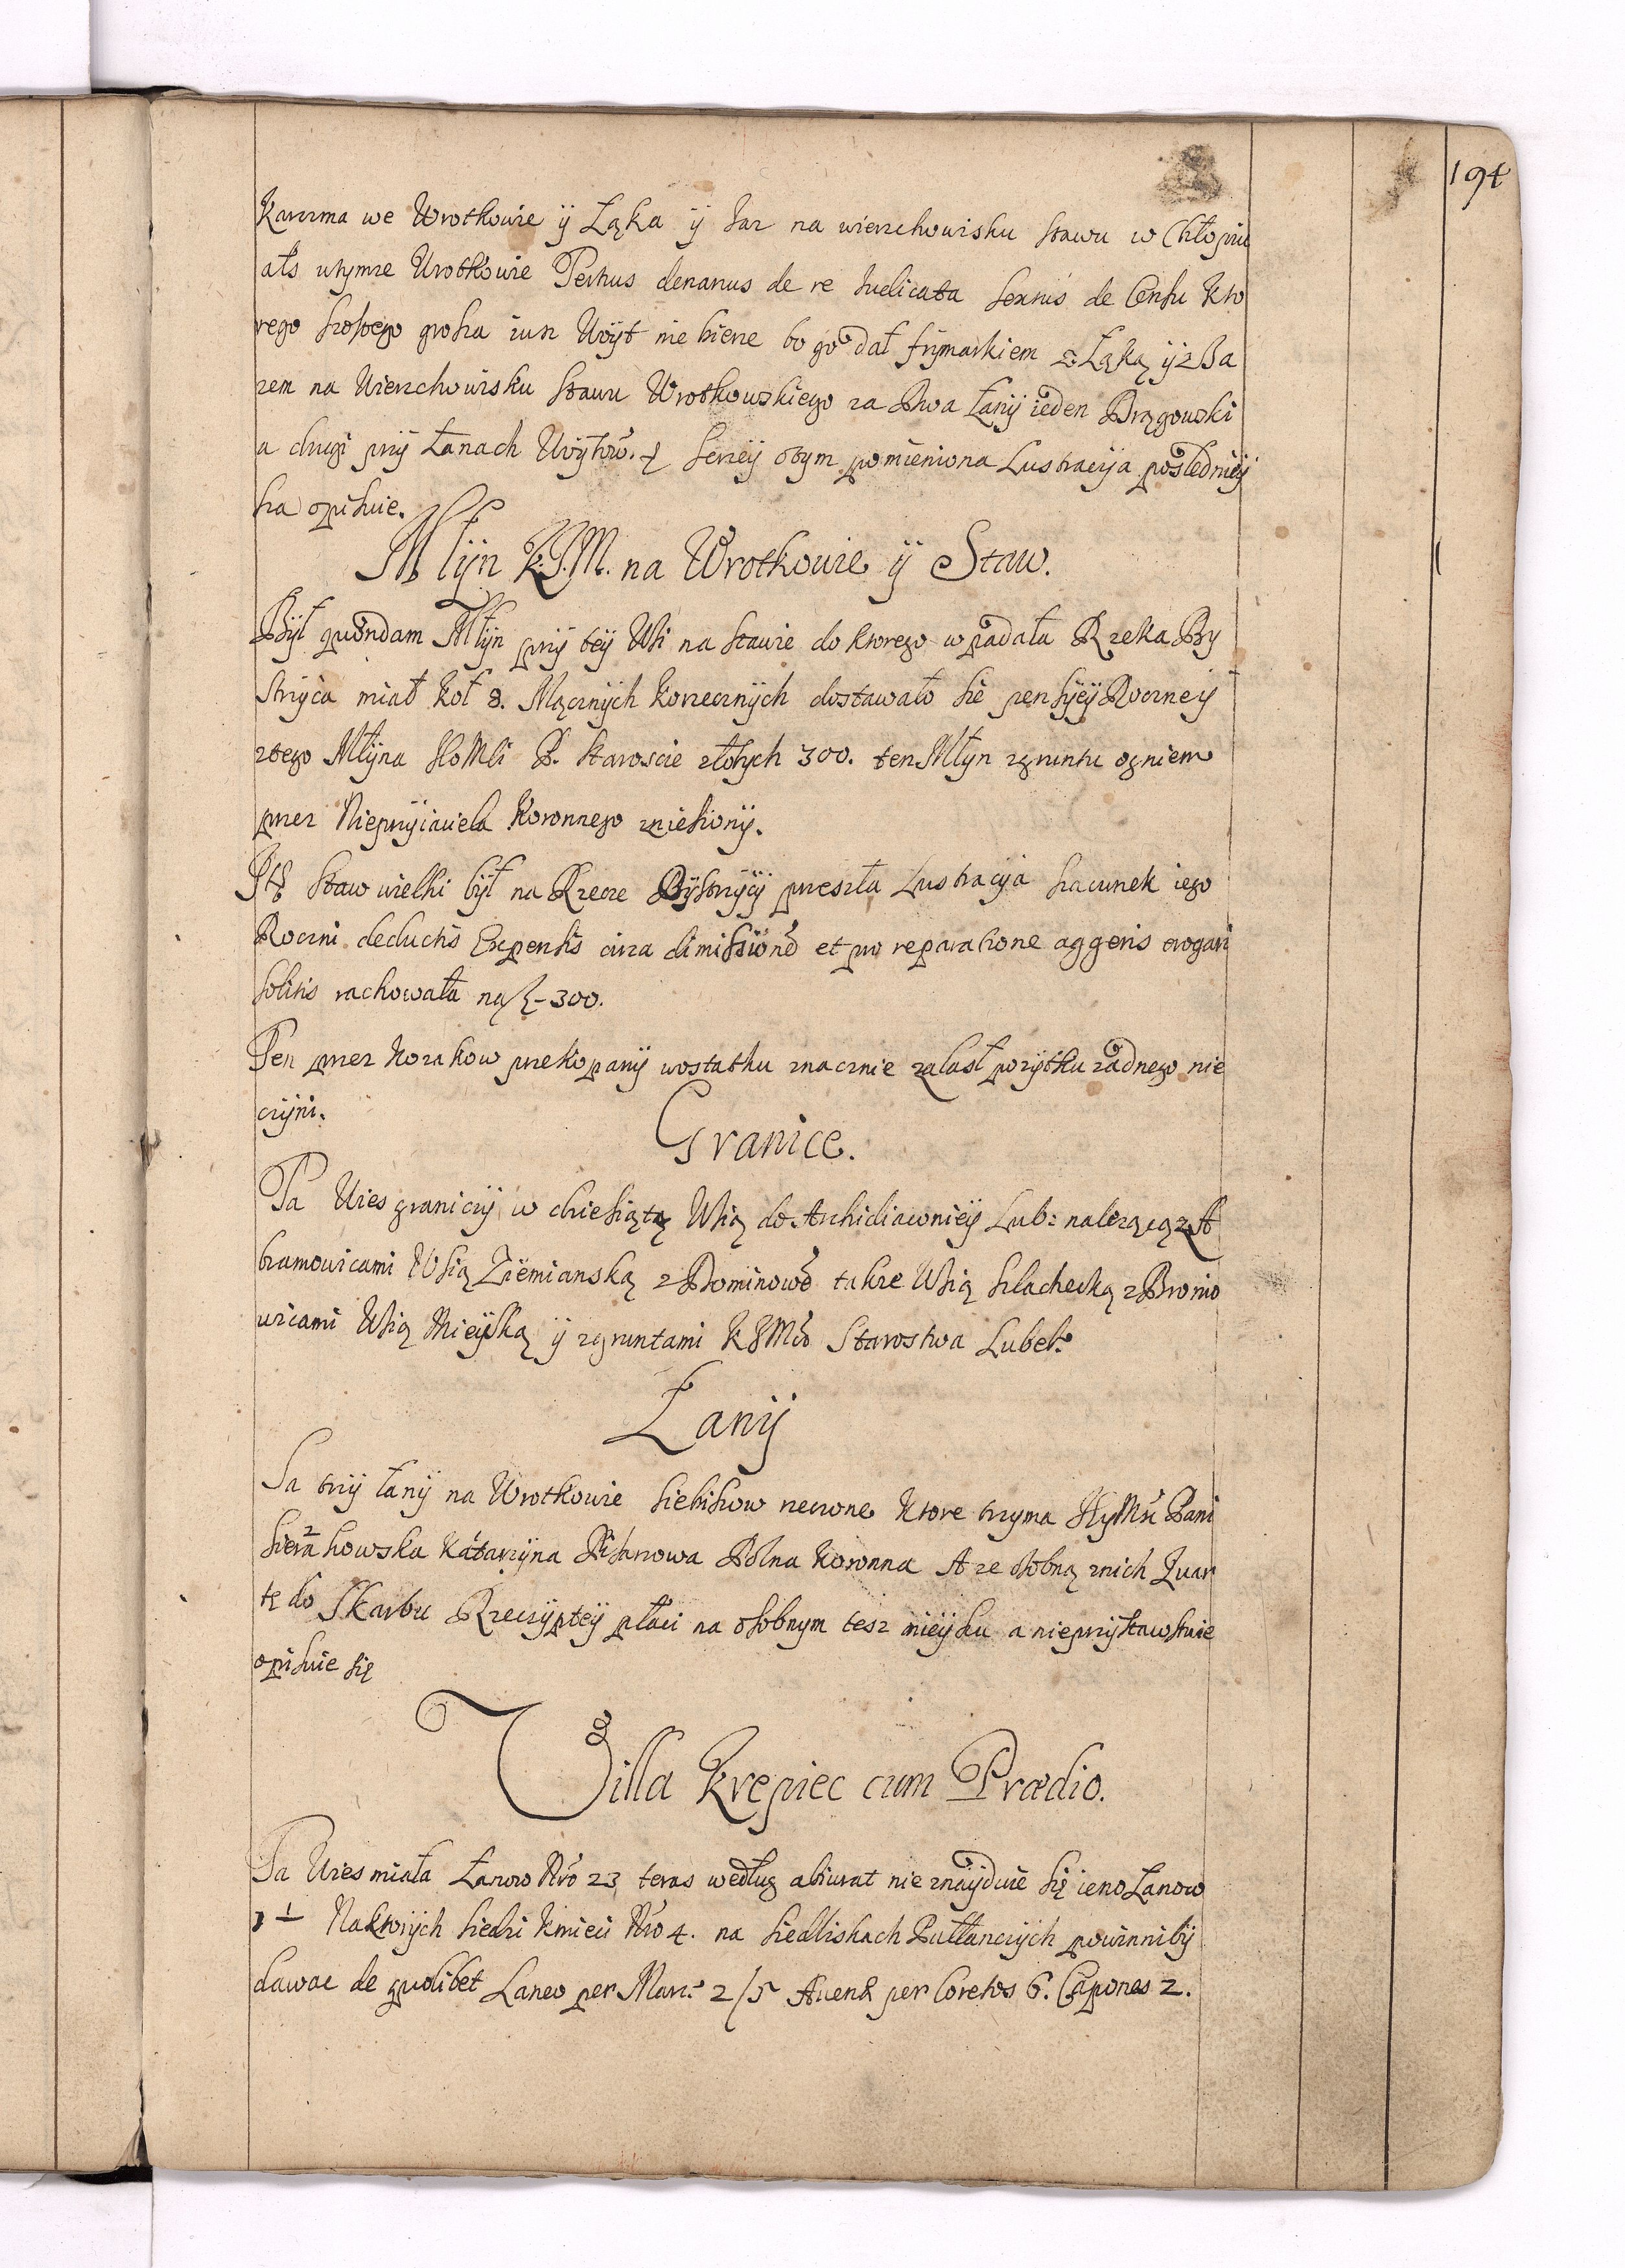 194
Karczma we Wrotkowie ÿ Łąka ÿ Jaz na wierzchowisku stawu w Chłopiu
als wtymze Wrotkowie Tertius denarius de re Iudicata Sextus de Censu Kto
rego szostego grosza iusz Woÿt nie bierze bo go dał frÿmarkiem z Łąką ÿ z Ba
rem na Wierzchowisku Stawu Wrotkowskiego za Dwa Łanÿ ieden Bręgowski
a drugi przÿ Łanach Woÿtow. Szerzeÿ otym pomieniona Lustracÿja posledniejÿ
sza opisuie.
Młÿn K.J.M. na Wrotkowie ÿ Staw.
Bÿł quondam Młÿn przÿ teÿ Wsi na stawie do ktorego wpadała Rzeka By
strÿca miał Koł 8. Mącznÿch Korzecznÿch dostawało sie pensÿeÿ Roczneÿ
ztego Młÿna JeoMsci P. Staroscie złotych 300. ten Młÿn zgruntu ogniem
przez Nieprzÿiaciela Koronnego zniesionÿ.
Ite Staw wielki bÿł na Rzece Bÿstrzÿcÿ przeszła Lustracÿja szacunek iego
Roczni deductis Expensis circa dimissione et pro reparatione aggeris erogari
solitis rachowała na fl-300.
Ten przez Kozakow przekopanÿ wostatku znacznie zalasł pozÿtku zadnego nie
czÿni.
Granice.
Ta Wies graniczÿ w dziesiątą Wsią do Archidiaconieÿ Lub: nalezącą z A
bramowicami Wsią Ziemianską z Dominowe takze Wsią szlachecką z Bronio
wicami Wsią Mieÿską ÿ zgruntami K J Mci Starostwa Lubel:
Łanÿ
Sa trzÿ łanÿ na Wrotkowie Siebiszow rzeczone Ktore trzyma JeyMsc Pani
Sierakowska Katarzÿna Pisarzowa Polna Koronna A ze osobną znich Quar
tę do Skarbu Rzeczÿptejÿ płaci na osobnym tesz mieÿscu a nieprzÿstawstwie
opisuie się
Villa Krepiec cum Prædio.
Ta Wies miała Łanow Nro 23 teras według abiurat nie znaÿduie się ieno Łanow
1 ½ Na ktorÿch siedzi Kmieci Nro 4. na siedliskach Pułłanczÿch powinnibÿ
dawac de quolibet Laneo per Marc: 2/5 Avenæ per Coretos 6. Capones 2.